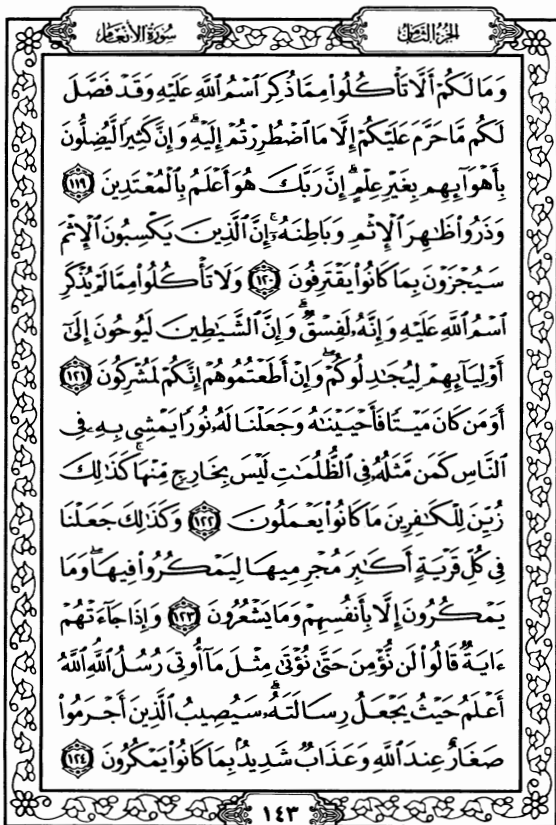 سُورَةُ الأَنْعَامِ
الجُزْءُ الثَّامِنُ
وَمَا لَكُمْ أَلَّا تَأْكُلُوا۟ مِمَّا ذُكِرَ ٱسْمُ ٱللَّهِ عَلَيْهِ وَقَدْ فَصَّلَ
لَكُم مَّا حَرَّمَ عَلَيْكُمْ إِلَّا مَا ٱضْطُرِرْتُمْ إِلَيْهِ ۗ وَإِنَّ كَثِيرًا لَّيُضِلُّونَ
بِأَهْوَآئِهِم بِغَيْرِ عِلْمٍ ۗ إِنَّ رَبَّكَ هُوَ أَعْلَمُ بِٱلْمُعْتَدِينَ ١١٩
وَذَرُوا۟ ظَٰهِرَ ٱلْإِثْمِ وَبَاطِنَهُۥٓ ۚ إِنَّ ٱلَّذِينَ يَكْسِبُونَ ٱلْإِثْمَ
سَيُجْزَوْنَ بِمَا كَانُوا۟ يَقْتَرِفُونَ ١٢٠ وَلَا تَأْكُلُوا۟ مِمَّا لَمْ يُذْكَرِ
ٱسْمُ ٱللَّهِ عَلَيْهِ وَإِنَّهُۥ لَفِسْقٌ ۗ وَإِنَّ ٱلشَّيَٰطِينَ لَيُوحُونَ إِلَىٰٓ
أَوْلِيَآئِهِمْ لِيُجَٰدِلُوكُمْ ۖ وَإِنْ أَطَعْتُمُوهُمْ إِنَّكُمْ لَمُشْرِكُونَ ١٢١
أَوَمَن كَانَ مَيْتًا فَأَحْيَيْنَٰهُ وَجَعَلْنَا لَهُۥ نُورًا يَمْشِى بِهِۦ فِى
ٱلنَّاسِ كَمَن مَّثَلُهُۥ فِى ٱلظُّلُمَٰتِ لَيْسَ بِخَارِجٍ مِّنْهَا ۚ كَذَٰلِكَ
زُيِّنَ لِلْكَٰفِرِينَ مَا كَانُوا۟ يَعْمَلُونَ ١٢٢ وَكَذَٰلِكَ جَعَلْنَا
فِى كُلِّ قَرْيَةٍ أَكَٰبِرَ مُجْرِمِيهَا لِيَمْكُرُوا۟ فِيهَا ۖ وَمَا
يَمْكُرُونَ إِلَّا بِأَنفُسِهِمْ وَمَا يَشْعُرُونَ ١٢٣ وَإِذَا جَآءَتْهُمْ
ءَايَةٌ قَالُوا۟ لَن نُّؤْمِنَ حَتَّىٰ نُؤْتَىٰ مِثْلَ مَآ أُوتِىَ رُسُلُ ٱللَّهِ ۘ ٱللَّهُ
أَعْلَمُ حَيْثُ يَجْعَلُ رِسَالَتَهُۥ ۗ سَيُصِيبُ ٱلَّذِينَ أَجْرَمُوا۟
صَغَارٌ عِندَ ٱللَّهِ وَعَذَابٌ شَدِيدٌۢ بِمَا كَانُوا۟ يَمْكُرُونَ ١٢٤
١٤٣